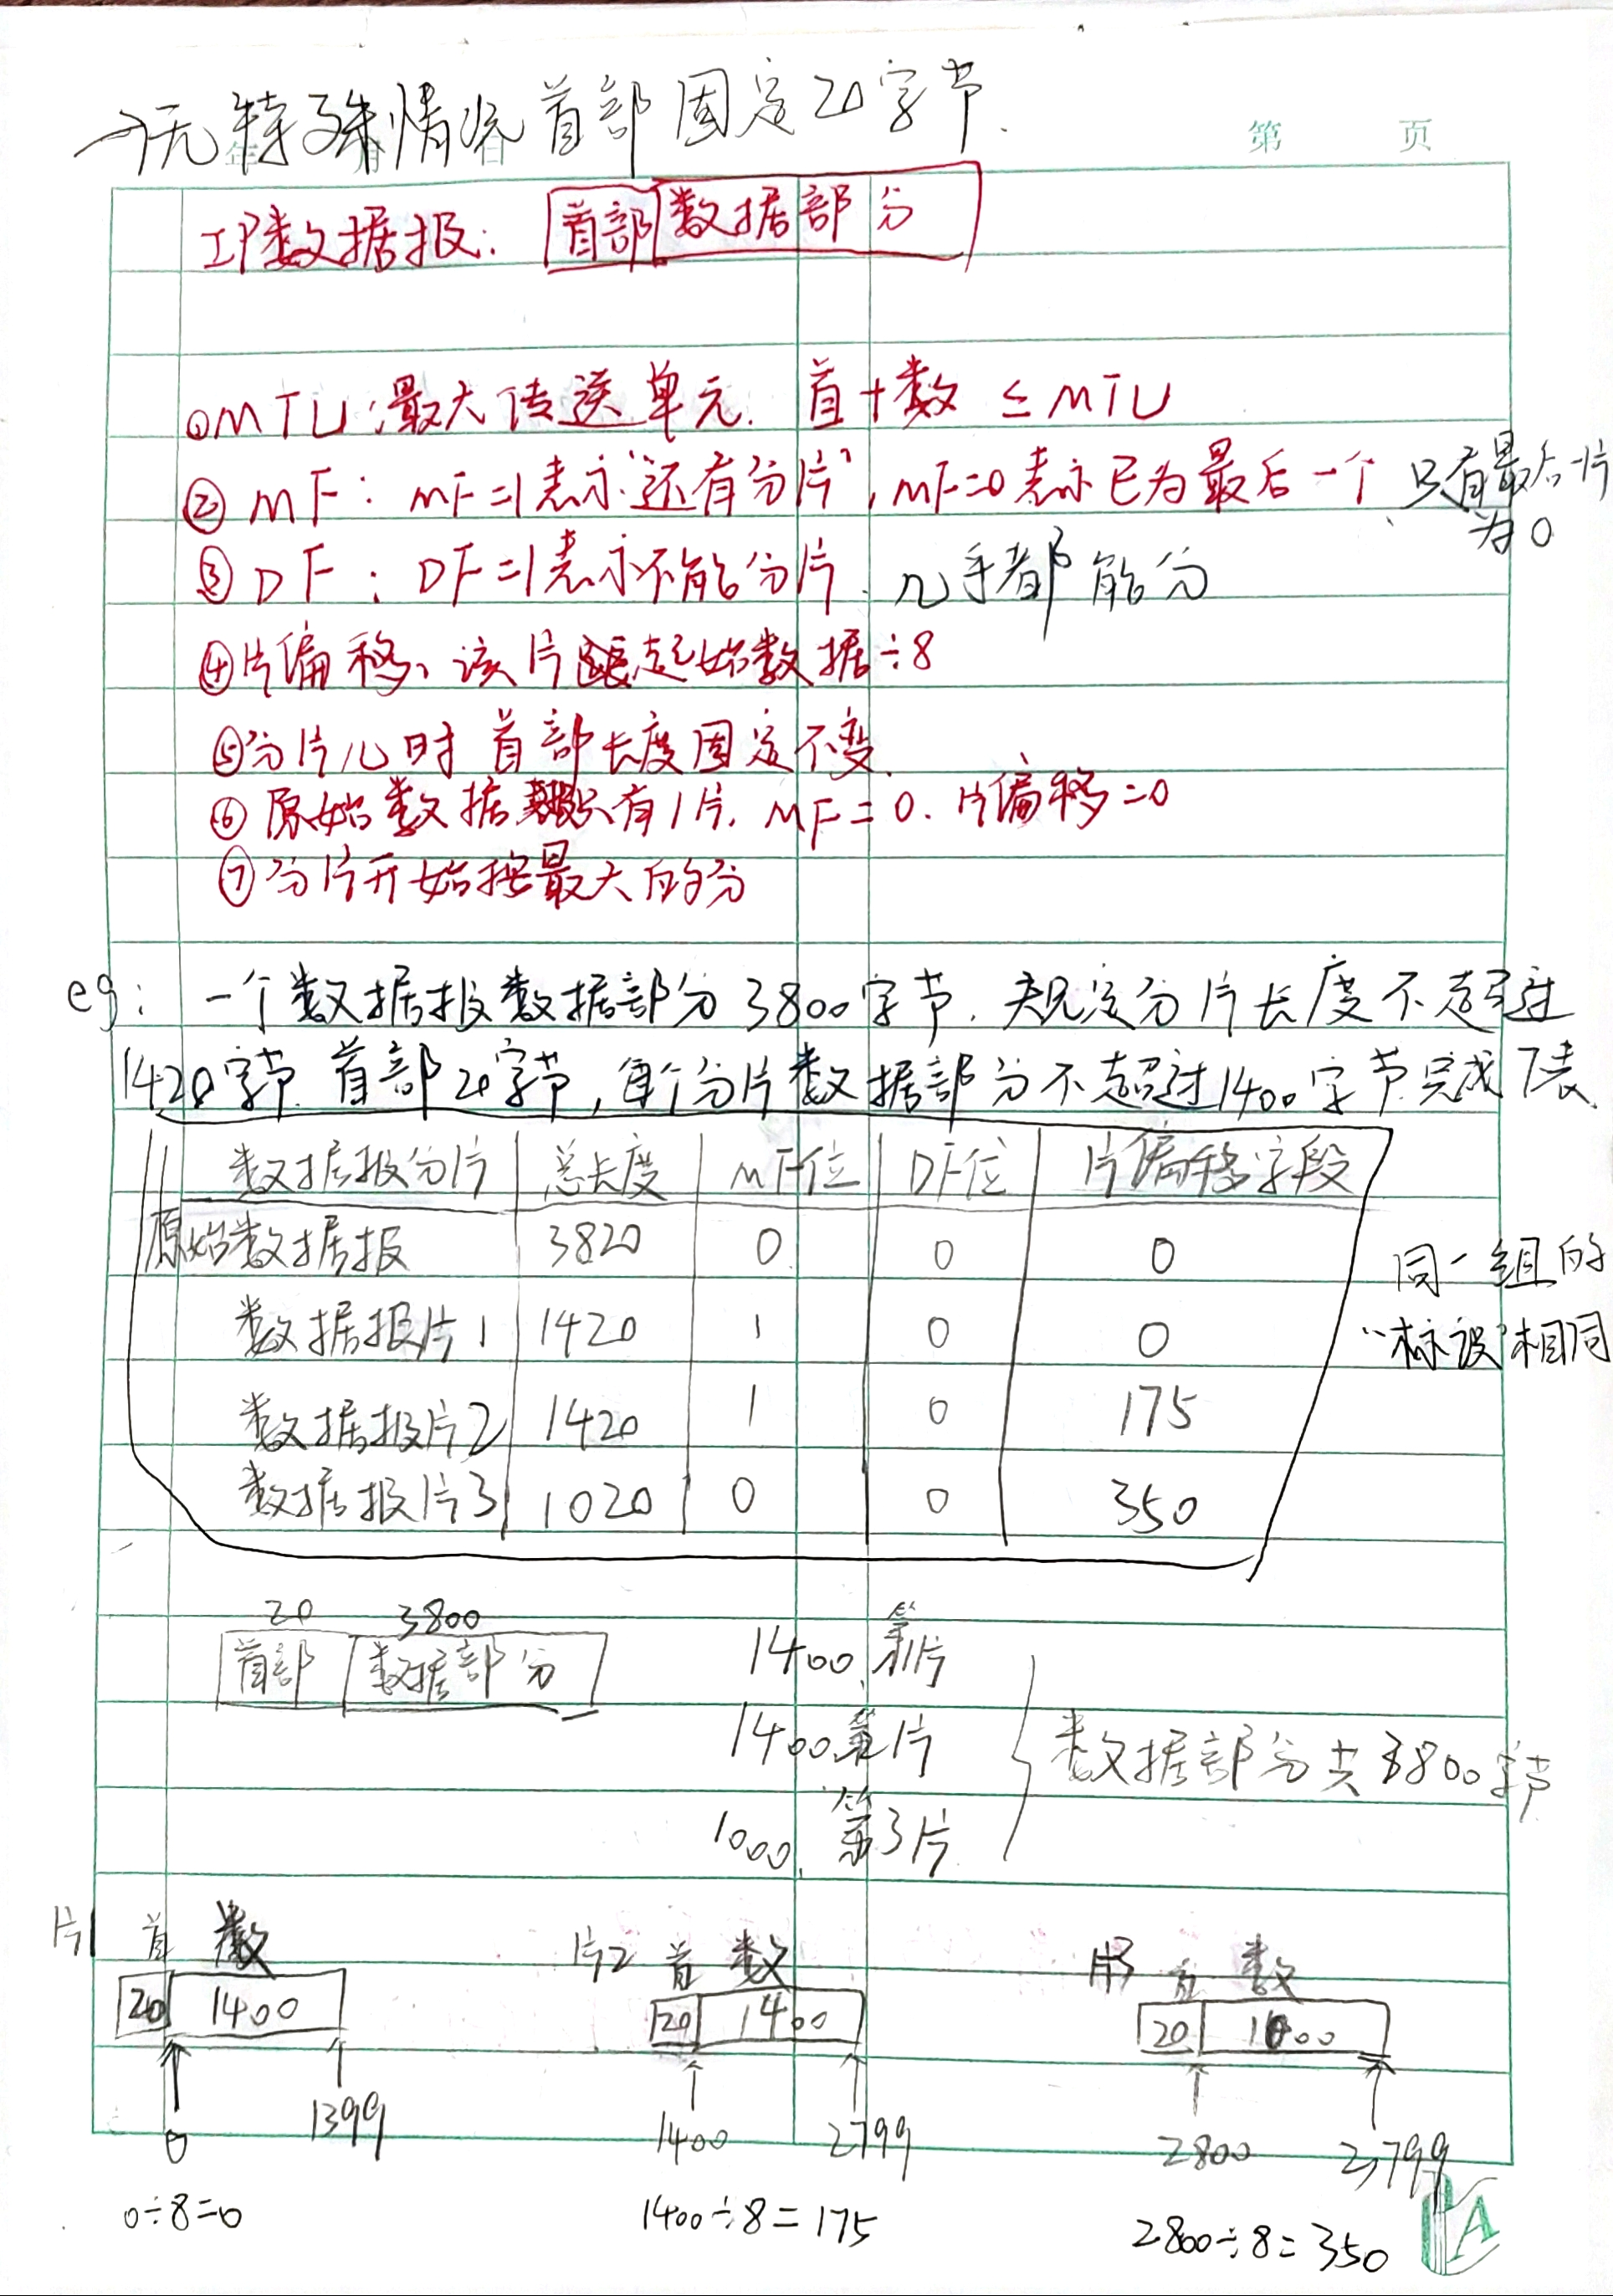 →无特殊情况首部固定20字节.
年 月 日
第 页
IP数据报: 首部 数据部分
①MTU:最大传送单元. 首+数 ≤MTU
②MF: MF=1表示“还有分片”,MF=0表示已为最后一个 只有最后一片
为0
③DF: DF=1表示不能分片. 几乎都能分
④片偏移、该片起始数据÷8
⑤分片儿时 首部长度固定不变.
⑥原始数据 只有1片. MF=0. 片偏移=0
⑦分片开始按最大的分
eg: 一个数据报数据部分3800字节. 规定分片长度不超过
1420字节. 首部20字节,每个分片数据部分不超过1400字节.完成下表.
数据报分片 总长度 MF位 DF位 片偏移字段
原始数据报 3820 0 0 0
同一组的
数据报片1 1420 1 0 0
“标设”相同
数据报片2 1420 1 0 175
数据报片3 1020 0 0 350
20 3800
首部 数据部分
1400 第1片
1400 第2片
数据部分共3800字节
1000. 第3片
片1 首 数 片2 首 数 片3 首 数
20 1400 20 1400 20 1000
0 1399 1400 2799 2800 3799
0÷8=0 1400÷8=175 2800÷8=350
A